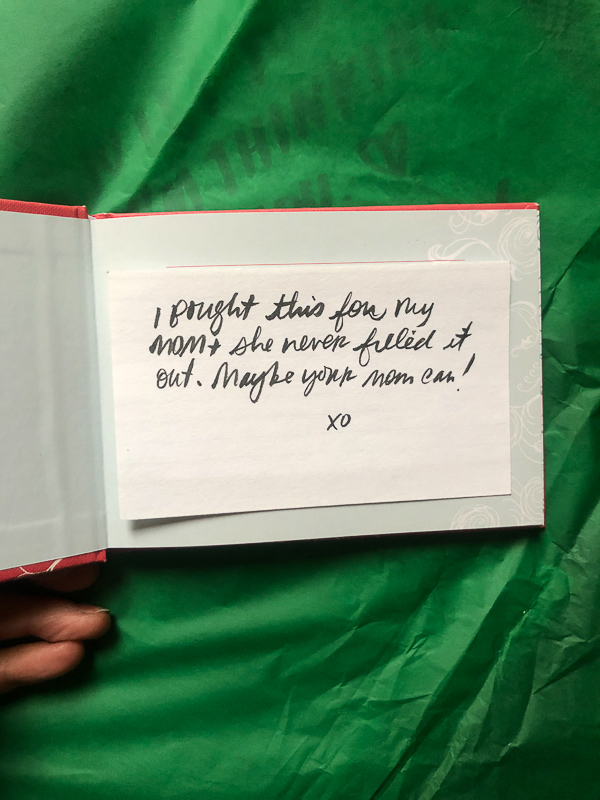 I bought this for my
mom + she never filled it
out. Maybe your mom can!
xo